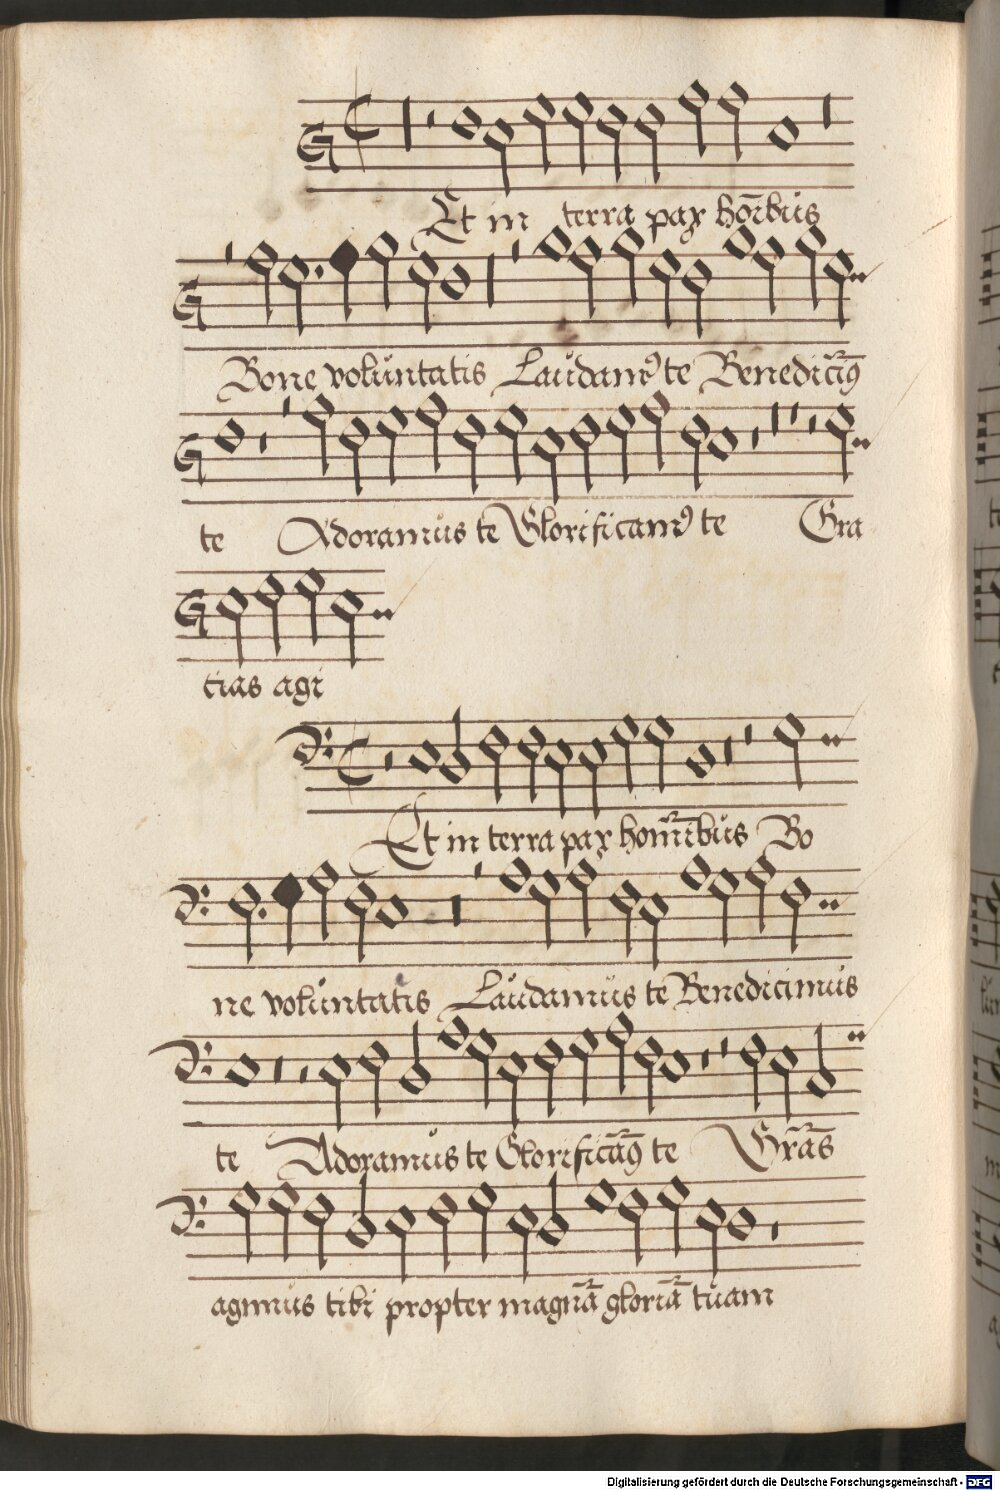 Et in terra pax hoību̇s
Bone volu̇ntatis Lau̇damꝰ te Benediciꝰ
te Adoramu̇s te Glorificamꝰ te Gra
tias agi
Et in terra pax homību̇s Bo
ne volu̇ntatis Lau̇damu̇s te Benedicimu̇s
te Adoramu̇s te Glorificāꝰ te Gr̄as
agimu̇s tibi propter magnā gloriā tu̇am
Digitalisierung gefördert durch die Deutsche Forschungsgemeinschaft - DFG